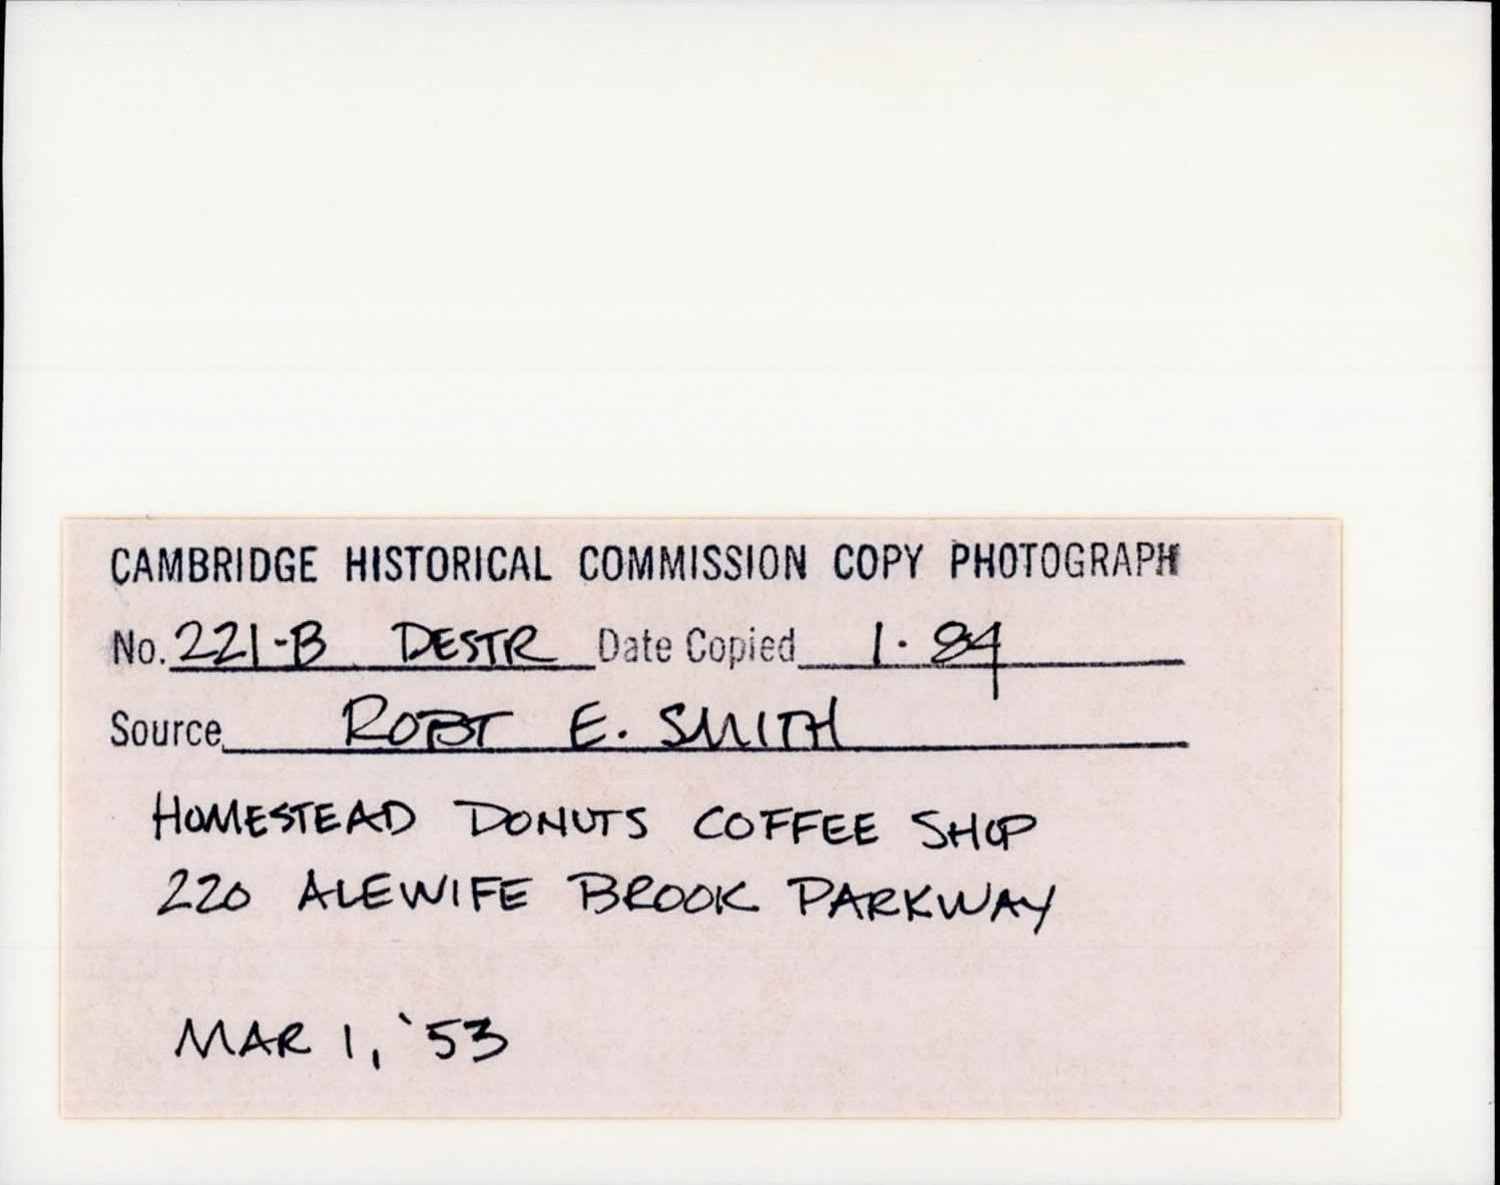 CAMBRIDGE HISTORICAL COMMISSION COPY PHOTOGRAPH
No. 221-B DESTR Date Copied 1.84
Source ROBT E. SMITH
HOMESTEAD DONUTS COFFEE SHOP
220 ALEWIFE BROOK PARKWAY
MAR 1, '53